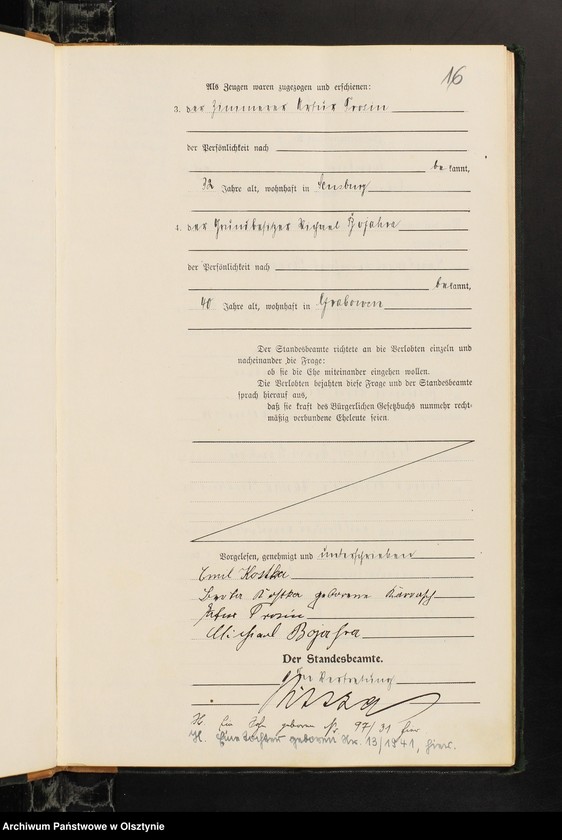 16
Als Zeugen waren zugezogen und erschienen:
3. der Zimmerer Artur Prosin
der Persönlichkeit nach
bekannt,
32 Jahre alt, wohnhaft in Sensburg
4. der Grundbesitzer Michael Bojahra
der Persönlichkeit nach
bekannt,
40 Jahre alt, wohnhaft in Grabowen
Der Standesbeamte richtete an die Verlobten einzeln und
nacheinander die Frage:
ob sie die Ehe miteinander eingehen wollen.
Die Verlobten bejahten diese Frage und der Standesbeamte
sprach hierauf aus,
daß sie kraft des Bürgerlichen Gesetzbuchs nunmehr recht-
mäßig verbundene Eheleute seien.
Vorgelesen, genehmigt und unterschrieben
Emil Kostka
Kostka geborene
Artur Prosin
Michael Bojahra
Der Standesbeamte.
In Vertretung
H. Ein Sohn geboren Nr. 97/31 hier
H. Eine Tochter geboren Nr. 13/1941, hier.
Archiwum Państwowe w Olsztynie